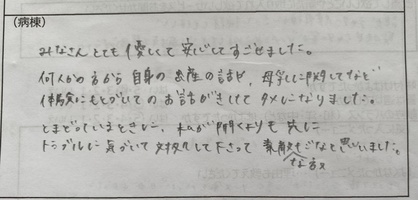 （病棟）
みなさんとても優しくて安心してすごせました。
何人かの方から自身の出産の話や、母乳に関してなど
体験にもとづいてのお話がきけてタメになりました。
とまどっているときに、私が聞くよりも先に
トラブルに気づいて対処して下さって素敵だなと思いました。
な方々